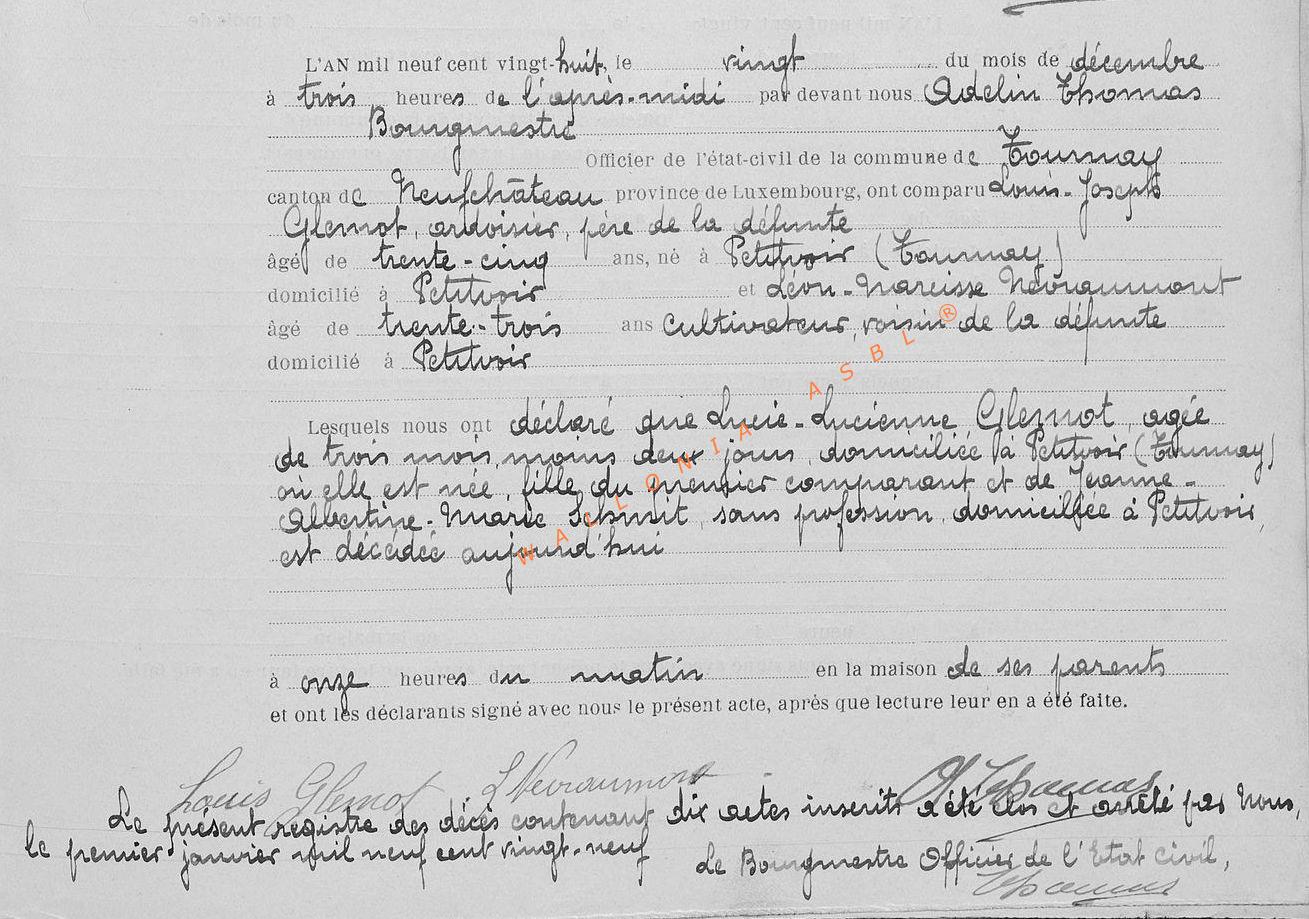 L'AN mil neuf cent vingt-huit, le vingt du mois de décembre
à trois heures de l'après-midi par devant nous Adelin Thomas
Bourgmestre
Officier de l'état-civil de la commune de Tournay
canton de Neufchâteau province de Luxembourg, ont comparu Louis-Joseph
Glemot, ardoisier, père de la défunte
âgé de trente-cinq ans, né à Petitvoir (Tournay)
domicilié à Petitvoir et Léon-Narcisse Névraumont
âgé de trente-trois ans cultivateur, voisin de la défunte
domicilié à Petitvoir
Lesquels nous ont déclaré que Lucie-Lucienne Glemot, agée
de trois mois, moins deux jours, domiciliée à Petitvoir (Tournay)
où elle est née, fille du premier comparant et de Jeanne-
Albertine-Marie Schmit, sans profession, domiciliée à Petitvoir,
est décédée aujourd'hui
à onze heures du matin en la maison de ses parents
et ont les déclarants signé avec nous le présent acte, après que lecture leur en a été faite.
Louis Glemot L Nevraumont Ad Thomas
Le présent registre des décès contenant dix actes inscrits a été clos et arrêté par Nous,
le premier janvier mil neuf cent vingt-neuf
Le Bourgmestre Officier de l'Etat Civil,
Thomas
WALLONIA ASBL ®